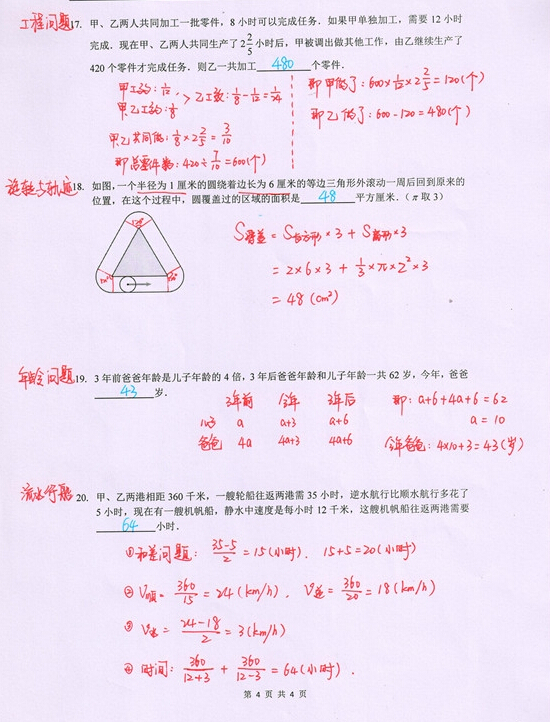 工程问题 17. 甲、乙两人共同加工一批零件，8 小时可以完成任务．如果甲单独加工，需要 12 小时
完成．现在甲、乙两人共同生产了 2 2/5 小时后，甲被调出做其他工作，由乙继续生产了
420 个零件才完成任务．则乙一共加工 480 个零件．
甲工效: 1/12
甲乙工效: 1/8
> 乙工效: 1/8 - 1/12 = 1/24
甲乙共同做: 1/8 × 2 2/5 = 3/10
即总零件数: 420 ÷ 7/10 = 600(个)
即甲做了: 600 × 1/12 × 2 2/5 = 120(个)
即乙做了: 600 - 120 = 480(个)
旋转与轨迹 18. 如图,一个半径为 1 厘米的圆绕着边长为 6 厘米的等边三角形外滚动一周后回到原来的
位置，在这个过程中，圆覆盖过的区域的面积是 48 平方厘米．（π 取 3）
120°
120°
120°
S覆盖 = S长方形 × 3 + S扇形 × 3
= 2×6×3 + 1/3 × π × 2² × 3
= 48 (cm²)
年龄问题 19. 3 年前爸爸年龄是儿子年龄的 4 倍，3 年后爸爸年龄和儿子年龄一共 62 岁，今年，爸爸
43 岁．
3年前 今年 3年后
儿子 a a+3 a+6
爸爸 4a 4a+3 4a+6
即: a+6+4a+6=62
a=10
今年爸爸: 4×10+3=43(岁)
流水行船 20. 甲、乙两港相距 360 千米，一艘轮船往返两港需 35 小时，逆水航行比顺水航行多花了
5 小时，现在有一艘机帆船，静水中速度是每小时 12 千米，这艘机帆船往返两港需要
64 小时．
①和差问题: (35-5)/2 = 15(小时)．15+5=20(小时)
②V顺 = 360/15 = 24(km/h)，V逆 = 360/20 = 18(km/h)
③V水 = (24-18)/2 = 3(km/h)
④时间: 360/(12+3) + 360/(12-3) = 64(小时)．
第 4 页 共 4 页